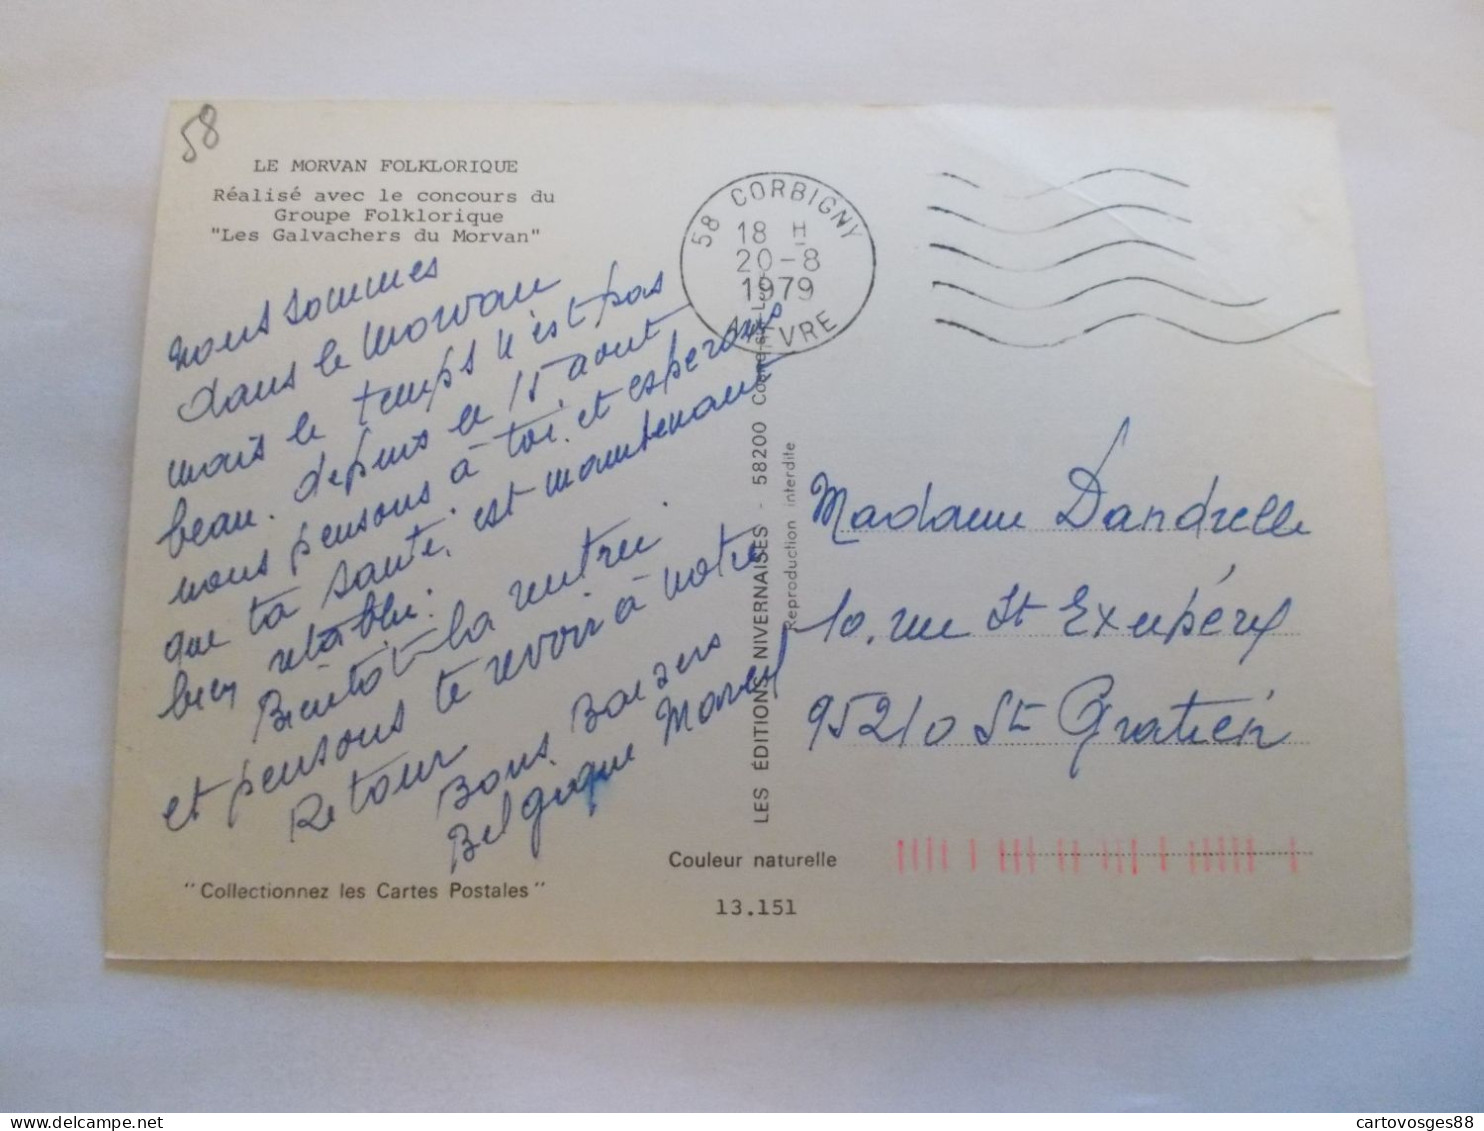 58
LE MORVAN FOLKLORIQUE
Réalisé avec le concours du
Groupe Folklorique
"Les Galvachers du Morvan"
nous sommes
dans le Morvan
mais le temps n'est pas
beau. depuis le 15 aout
nous pensons à toi. et esperons
que ta santé. est maintenant
bien rétablie.
Bientôt la rentrée.
et pensons te revoir à notre
Retour
Bons Baisers
"Collectionnez les Cartes Postales"
58 CORBIGNY
18 H
20-8
1979
NIEVRE
LES ÉDITIONS NIVERNAISES - 58200 Cosne-sur-L
Reproduction interdite
Couleur naturelle
13.151
Madame Dandrelle
10. rue St Exupéry
95210 St Gratien
cartovosges88